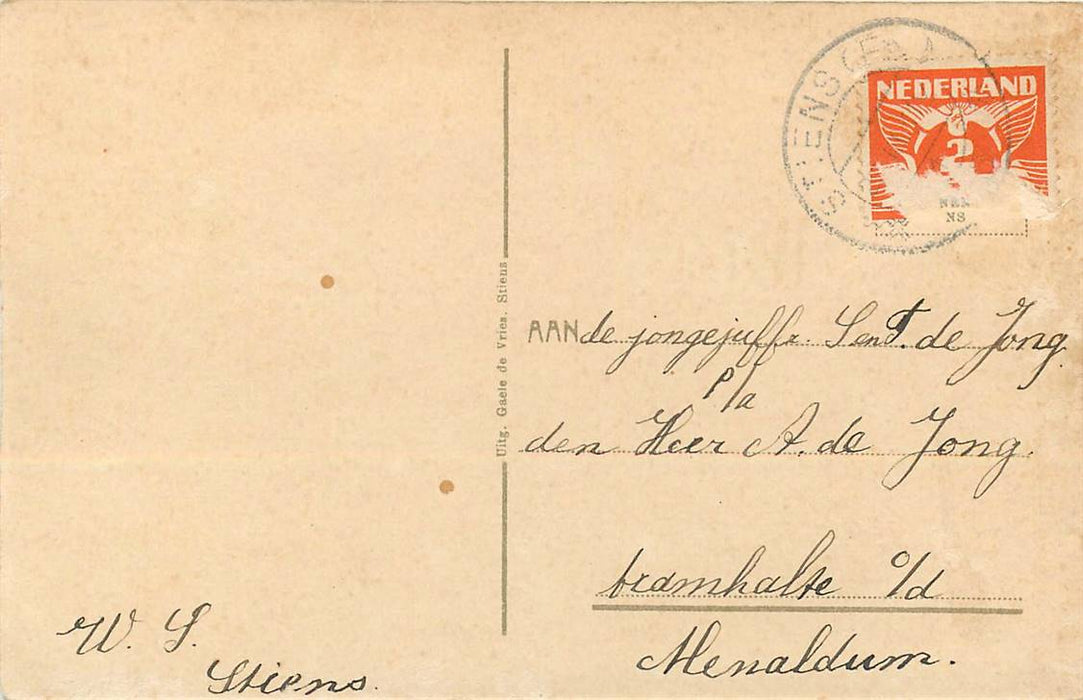 STIENS (FR.)
NEDERLAND
2
NS
Uitg. Gaele de Vries, Stiens
AAN de jongejuffr. S en T. de Jong
p/a
den Heer A. de Jong.
tramhalte o/d
Menaldum.
W. S.
Stiens.